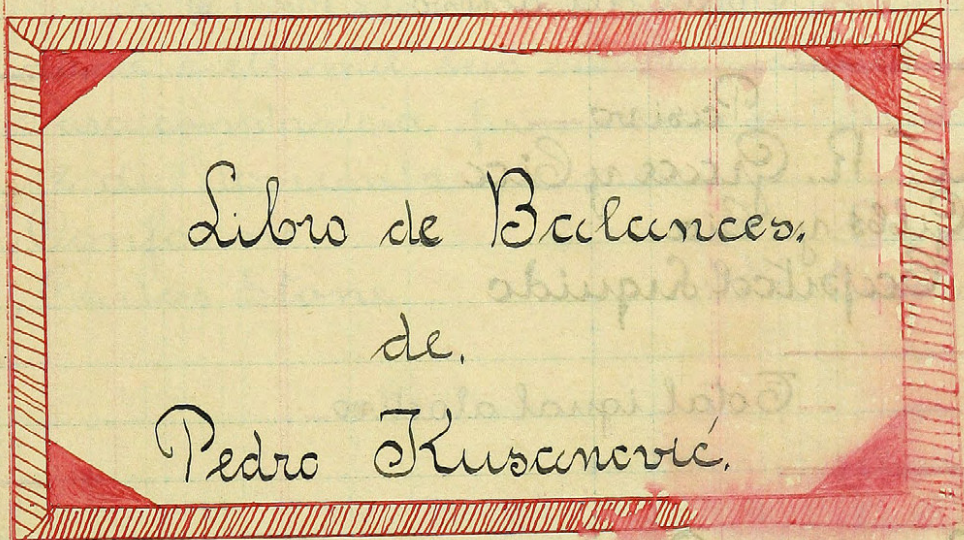 Libro de Balances.
de.
Pedro Kusanović.